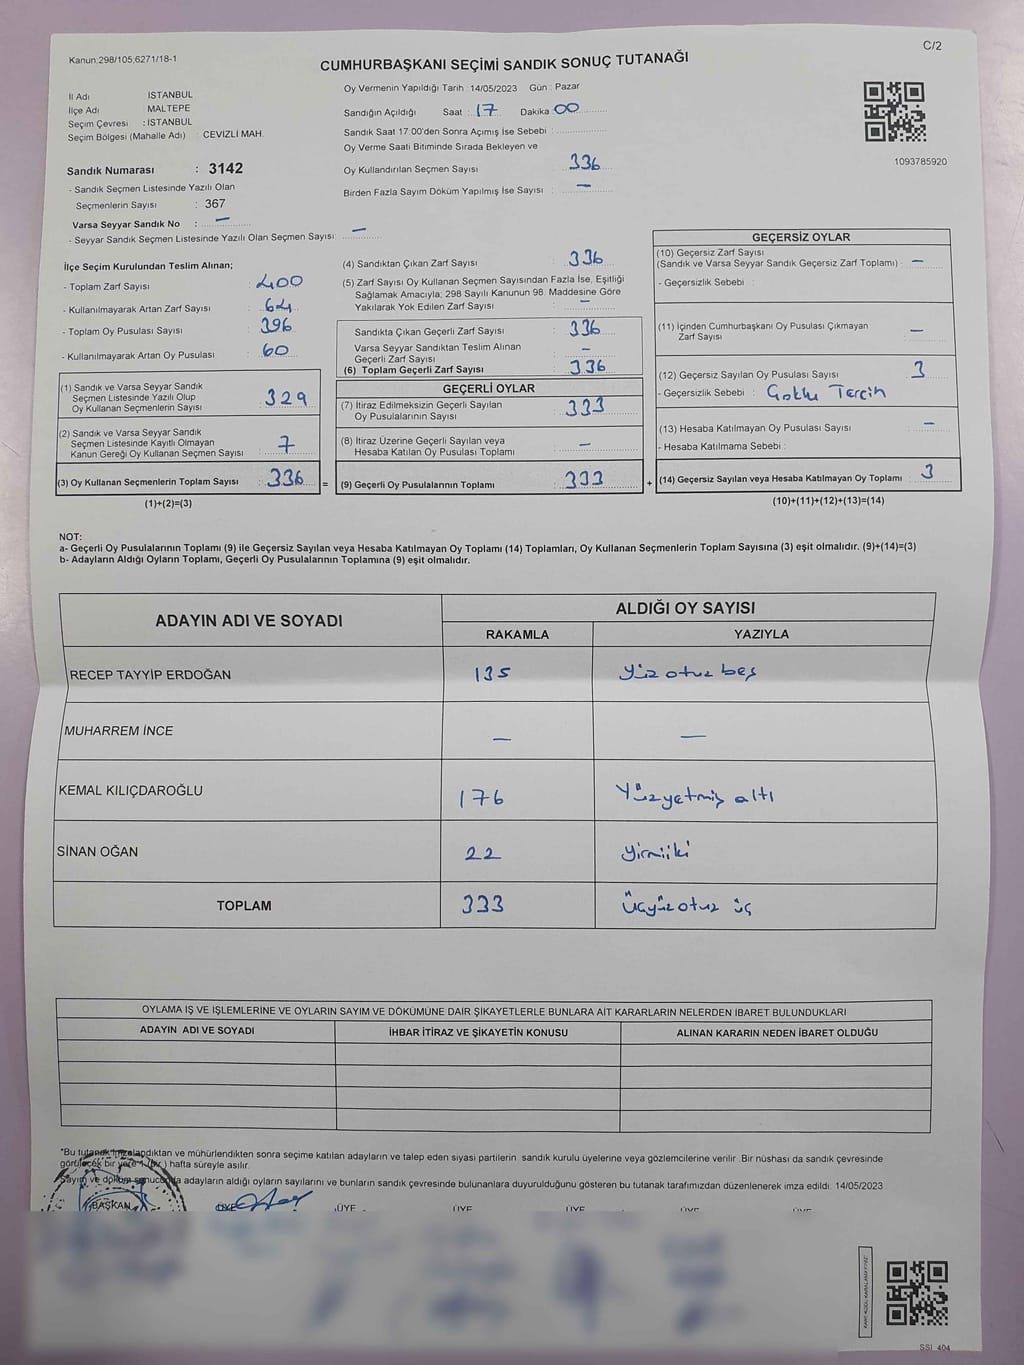 Kanun:298/105;6271/18-1
C/2
CUMHURBAŞKANI SEÇİMİ SANDIK SONUÇ TUTANAĞI
İl Adı İSTANBUL
İlçe Adı MALTEPE
Seçim Çevresi : İSTANBUL
Seçim Bölgesi (Mahalle Adı) : CEVİZLİ MAH.
Oy Vermenin Yapıldığı Tarih : 14/05/2023 Gün : Pazar
Sandığın Açıldığı Saat : 17 Dakika 00
Sandık Saat 17:00'den Sonra Açımış İse Sebebi :
Oy Verme Saati Bitiminde Sırada Bekleyen ve
Oy Kullandırılan Seçmen Sayısı 336
Birden Fazla Sayım Döküm Yapılmış İse Sayısı : —
1093785920
Sandık Numarası : 3142
- Sandık Seçmen Listesinde Yazılı Olan
Seçmenlerin Sayısı : 367
Varsa Seyyar Sandık No : —
- Seyyar Sandık Seçmen Listesinde Yazılı Olan Seçmen Sayısı : —
İlçe Seçim Kurulundan Teslim Alınan;
- Toplam Zarf Sayısı : 400
- Kullanılmayarak Artan Zarf Sayısı : 64
- Toplam Oy Pusulası Sayısı : 396
- Kullanılmayarak Artan Oy Pusulası : 60
(1) Sandık ve Varsa Seyyar Sandık
Seçmen Listesinde Yazılı Olup
Oy Kullanan Seçmenlerin Sayısı : 329
(2) Sandık ve Varsa Seyyar Sandık
Seçmen Listesinde Kayıtlı Olmayan
Kanun Gereği Oy Kullanan Seçmen Sayısı : 7
(3) Oy Kullanan Seçmenlerin Toplam Sayısı : 336 =
(1)+(2)=(3)
(4) Sandıktan Çıkan Zarf Sayısı : 336
(5) Zarf Sayısı Oy Kullanan Seçmen Sayısından Fazla İse, Eşitliği
Sağlamak Amacıyla; 298 Sayılı Kanunun 98. Maddesine Göre
Yakılarak Yok Edilen Zarf Sayısı : —
Sandıkta Çıkan Geçerli Zarf Sayısı : 336
Varsa Seyyar Sandıktan Teslim Alınan
Geçerli Zarf Sayısı : —
(6) Toplam Geçerli Zarf Sayısı : 336
GEÇERLİ OYLAR
(7) İtiraz Edilmeksizin Geçerli Sayılan
Oy Pusulalarının Sayısı : 333
(8) İtiraz Üzerine Geçerli Sayılan veya
Hesaba Katılan Oy Pusulası Toplamı : —
(9) Geçerli Oy Pusulalarının Toplamı : 333 +
GEÇERSİZ OYLAR
(10) Geçersiz Zarf Sayısı
(Sandık ve Varsa Seyyar Sandık Geçersiz Zarf Toplamı) : —
- Geçersizlik Sebebi :
(11) İçinden Cumhurbaşkanı Oy Pusulası Çıkmayan
Zarf Sayısı : —
(12) Geçersiz Sayılan Oy Pusulası Sayısı : 3
- Geçersizlik Sebebi : Çoklu Tercih
(13) Hesaba Katılmayan Oy Pusulası Sayısı : —
- Hesaba Katılmama Sebebi :
(14) Geçersiz Sayılan veya Hesaba Katılmayan Oy Toplamı : 3
(10)+(11)+(12)+(13)=(14)
NOT:
a- Geçerli Oy Pusulalarının Toplamı (9) ile Geçersiz Sayılan veya Hesaba Katılmayan Oy Toplamı (14) Toplamları, Oy Kullanan Seçmenlerin Toplam Sayısına (3) eşit olmalıdır. (9)+(14)=(3)
b- Adayların Aldığı Oyların Toplamı, Geçerli Oy Pusulalarının Toplamına (9) eşit olmalıdır.
ADAYIN ADI VE SOYADI
ALDIĞI OY SAYISI
RAKAMLA YAZIYLA
RECEP TAYYİP ERDOĞAN 135 Yüz otuz beş
MUHARREM İNCE — —
KEMAL KILIÇDAROĞLU 176 Yüzyetmiş altı
SİNAN OĞAN 22 yirmiiki
TOPLAM 333 Üçyüz otuz üç
OYLAMA İŞ VE İŞLEMLERİNE VE OYLARIN SAYIM VE DÖKÜMÜNE DAİR ŞİKAYETLERLE BUNLARA AİT KARARLARIN NELERDEN İBARET BULUNDUKLARI
ADAYIN ADI VE SOYADI İHBAR İTİRAZ VE ŞİKAYETİN KONUSU ALINAN KARARIN NEDEN İBARET OLDUĞU
*Bu tutanak imzalandıktan ve mühürlendikten sonra seçime katılan adayların ve talep eden siyasi partilerin sandık kurulu üyelerine veya gözlemcilerine verilir. Bir nüshası da sandık çevresinde
görülecek bir yere 1 (bir) hafta süreyle asılır.
Sayım ve döküm sonucunda adayların aldığı oyların sayılarını ve bunların sandık çevresinde bulunanlara duyurulduğunu gösteren bu tutanak tarafımızdan düzenlenerek imza edildi. 14/05/2023
BAŞKAN ÜYE ÜYE ÜYE ÜYE ÜYE ÜYE
SSI_404